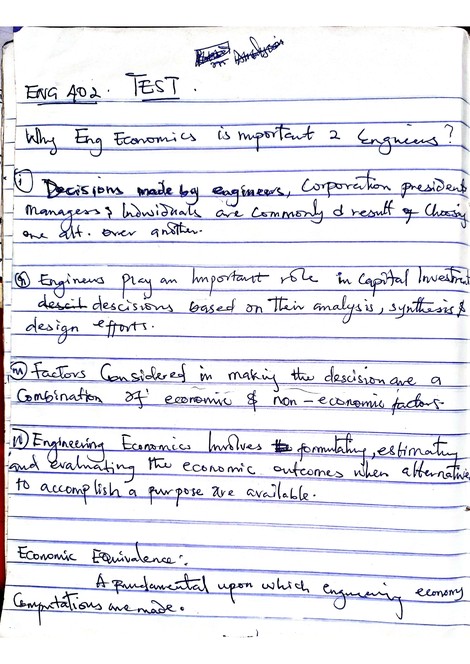 on Analysis
ENG 402. TEST.
Why Eng Economics is important 2 Engineers?
(i) Decisions made by engineers, Corporation president
Managers & Individuals are commonly d result of Choosing
one alt. over another.
(ii) Engineers play an Important role in Capital Investment
descisions based on their analysis, synthesis &
design efforts.
(iii) Factors Considered in making the descision are a
Combination of economic & non-economic factors.
(iv) Engineering Economics Involves formulating, estimating
and evaluating the economic outcomes when alternative
to accomplish a purpose are available.
Economic Equivalence:
A fundamental upon which engineering economy
Computations are made.